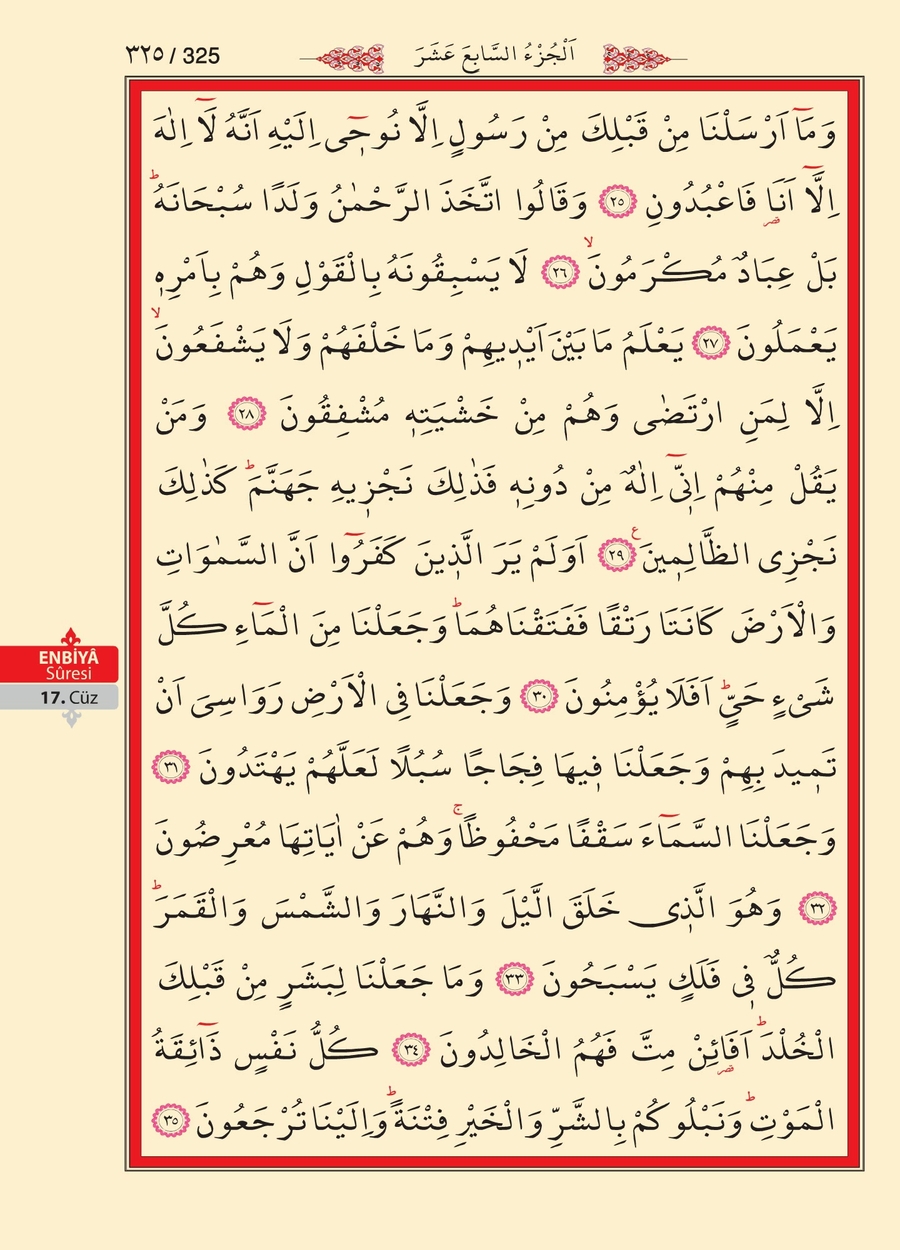 ٣٢٥ / 325
اَلْجُزْءُ السَّابِعَ عَشَرَ
وَمَٓا اَرْسَلْنَا مِنْ قَبْلِكَ مِنْ رَسُولٍ اِلَّا نُوح۪ٓي اِلَيْهِ اَنَّهُ لَٓا اِلٰهَ
اِلَّٓا اَنَا۬ فَاعْبُدُونِ ﴿٢٥﴾ وَقَالُوا اتَّخَذَ الرَّحْمٰنُ وَلَدًا سُبْحَانَهُۜ
بَلْ عِبَادٌ مُكْرَمُونَۙ ﴿٢٦﴾ لَا يَسْبِقُونَهُ بِالْقَوْلِ وَهُمْ بِاَمْرِه۪
يَعْمَلُونَ ﴿٢٧﴾ يَعْلَمُ مَا بَيْنَ اَيْد۪يهِمْ وَمَا خَلْفَهُمْ وَلَا يَشْفَعُونَۙ
اِلَّا لِمَنِ ارْتَضٰى وَهُمْ مِنْ خَشْيَتِه۪ مُشْفِقُونَ ﴿٢٨﴾ وَمَنْ
يَقُلْ مِنْهُمْ اِنّ۪ٓي اِلٰهٌ مِنْ دُونِه۪ فَذٰلِكَ نَجْز۪يهِ جَهَنَّمَۜ كَذٰلِكَ
نَجْزِي الظَّالِم۪ينَ۟ ﴿٢٩﴾ اَوَلَمْ يَرَ الَّذ۪ينَ كَفَرُٓوا اَنَّ السَّمٰوَاتِ
وَالْاَرْضَ كَانَتَا رَتْقًا فَفَتَقْنَاهُمَاۜ وَجَعَلْنَا مِنَ الْمَٓاءِ كُلَّ
شَيْءٍ حَيٍّۜ اَفَلَا يُؤْمِنُونَ ﴿٣٠﴾ وَجَعَلْنَا فِي الْاَرْضِ رَوَاسِيَ اَنْ
تَم۪يدَ بِهِمْ وَجَعَلْنَا ف۪يهَا فِجَاجًا سُبُلًا لَعَلَّهُمْ يَهْتَدُونَ ﴿٣١﴾
وَجَعَلْنَا السَّمَٓاءَ سَقْفًا مَحْفُوظًاۚ وَهُمْ عَنْ اٰيَاتِهَا مُعْرِضُونَ
﴿٣٢﴾ وَهُوَ الَّذ۪ي خَلَقَ الَّيْلَ وَالنَّهَارَ وَالشَّمْسَ وَالْقَمَرَۜ
كُلٌّ ف۪ي فَلَكٍ يَسْبَحُونَ ﴿٣٣﴾ وَمَا جَعَلْنَا لِبَشَرٍ مِنْ قَبْلِكَ
الْخُلْدَۜ اَفَا۬ئِنْ مِتَّ فَهُمُ الْخَالِدُونَ ﴿٣٤﴾ كُلُّ نَفْسٍ ذَٓائِقَةُ
الْمَوْتِۜ وَنَبْلُوكُمْ بِالشَّرِّ وَالْخَيْرِ فِتْنَةًۜ وَاِلَيْنَا تُرْجَعُونَ ﴿٣٥﴾
ENBİYÂ
Sûresi
17. Cüz